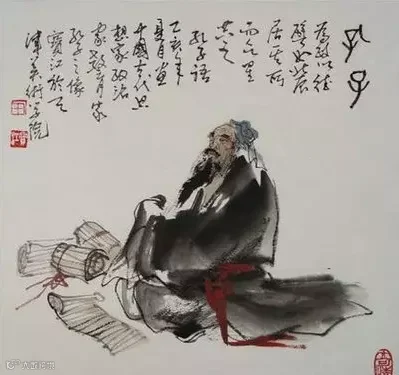 孔子
為政以德
譬如北辰
居其所
而众星
共之
孔子語
乙亥年
夏月畫
中國古代思
想家政治
家教育家
孔子之像
寶江於天
津美術學院